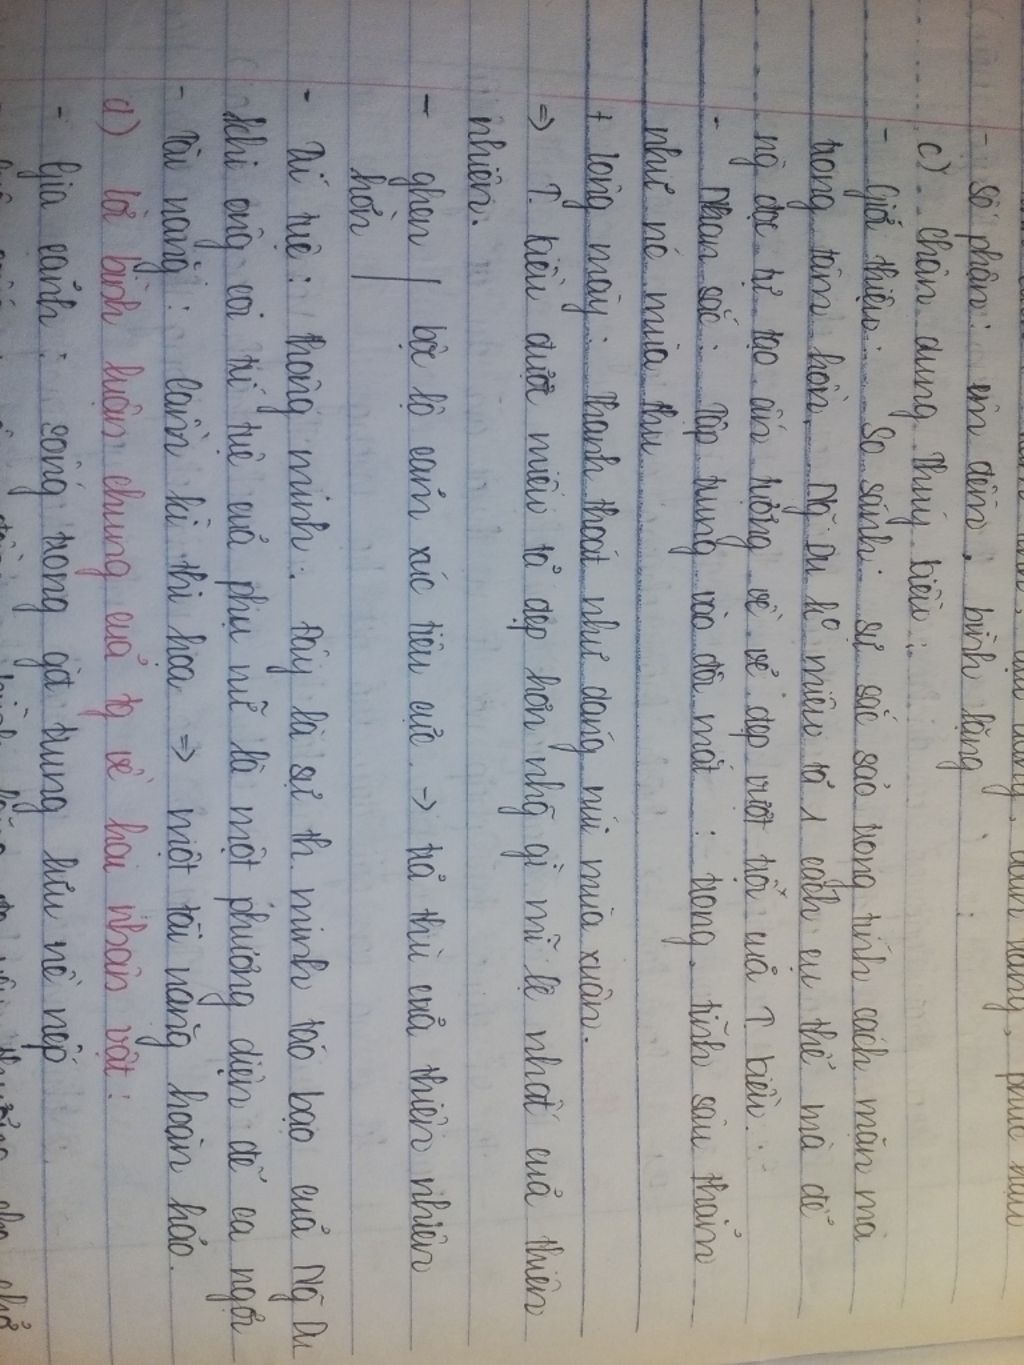 - số phận: êm đềm, bình lặng
c) Chân dung Thúy Kiều:
- Giới thiệu: So sánh: sự sắc sảo trong tính cách mặn mà
trong tâm hồn. Ng~ Du ko miêu tả 1 cách cụ thể mà để
ng` đọc tự tạo ấn tượng về vẻ đẹp vượt trội của T. Kiều.
- Nhan sắc: Tập trung vào đôi mắt: trong, tĩnh sâu thẳm
như nó mùa thu
+ Lông mày: thanh thoát như dáng núi mùa xuân.
=> T. Kiều được miêu tả đẹp hơn nhg~ gì mĩ lệ nhất của thiên
nhiên.
- ghen / bộc lộ cảm xúc tiêu cực -> trả thù của thiên nhiên
hờn /
- Trí tuệ: thông minh. Đây là sự th. minh táo bạo của Ng~ Du
khi ông coi trí tuệ của phụ nữ là một phương diện để ca ngợi
- Tài năng: Cầm kì thi họa => một tài năng hoàn hảo.
d) Lời bình luận chung của tg về hai nhân vật:
- Gia cảnh: sống trong gđ trung lưu nề nếp